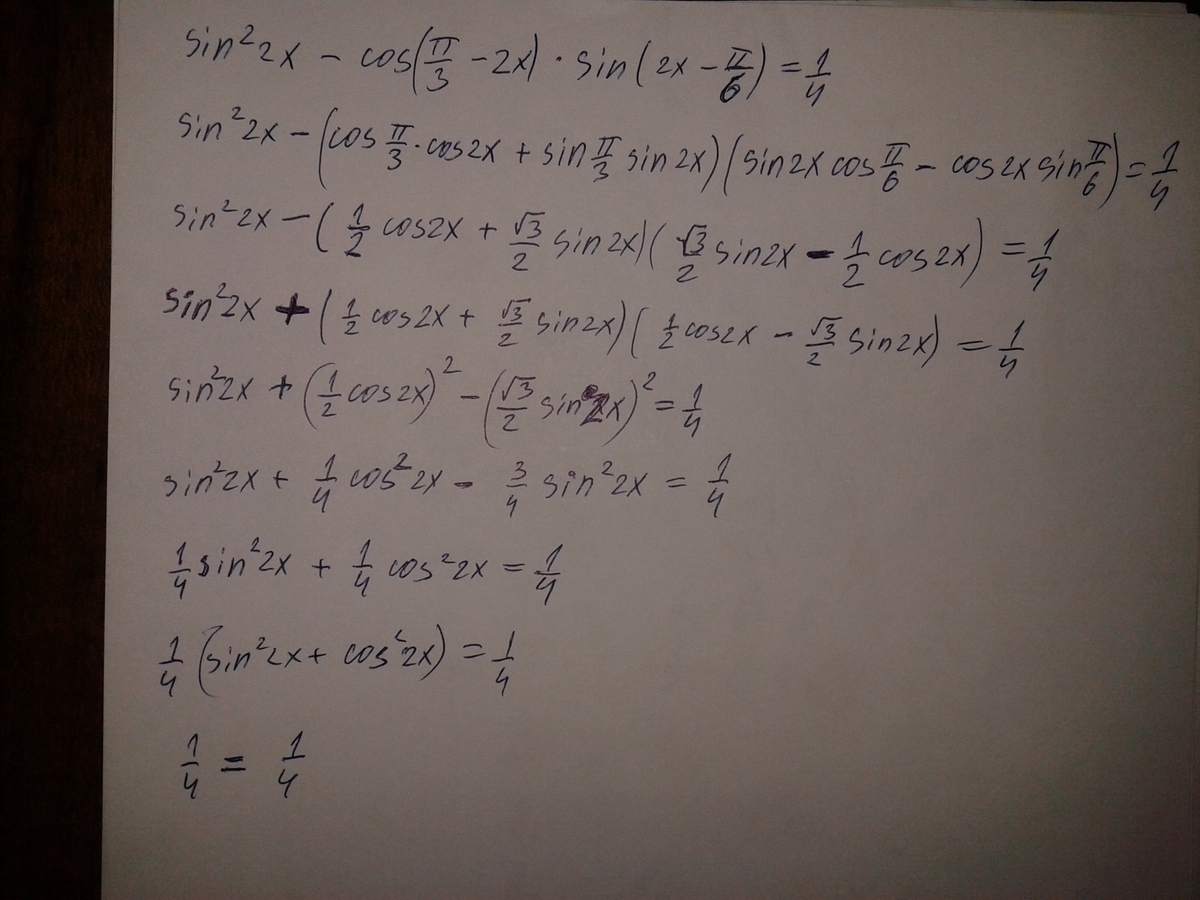 sin²2x − cos(π/3 − 2x) · sin(2x − π/6) = 1/4
sin²2x − (cos π/3 · cos2x + sin π/3 sin2x)(sin2x cos π/6 − cos2x sin π/6) = 1/4
sin²2x − (1/2 cos2x + √3/2 sin2x)(√3/2 sin2x − 1/2 cos2x) = 1/4
sin²2x + (1/2 cos2x + √3/2 sin2x)(1/2 cos2x − √3/2 sin2x) = 1/4
sin²2x + (1/2 cos2x)² − (√3/2 sin2x)² = 1/4
sin²2x + 1/4 cos²2x − 3/4 sin²2x = 1/4
1/4 sin²2x + 1/4 cos²2x = 1/4
1/4 (sin²2x + cos²2x) = 1/4
1/4 = 1/4